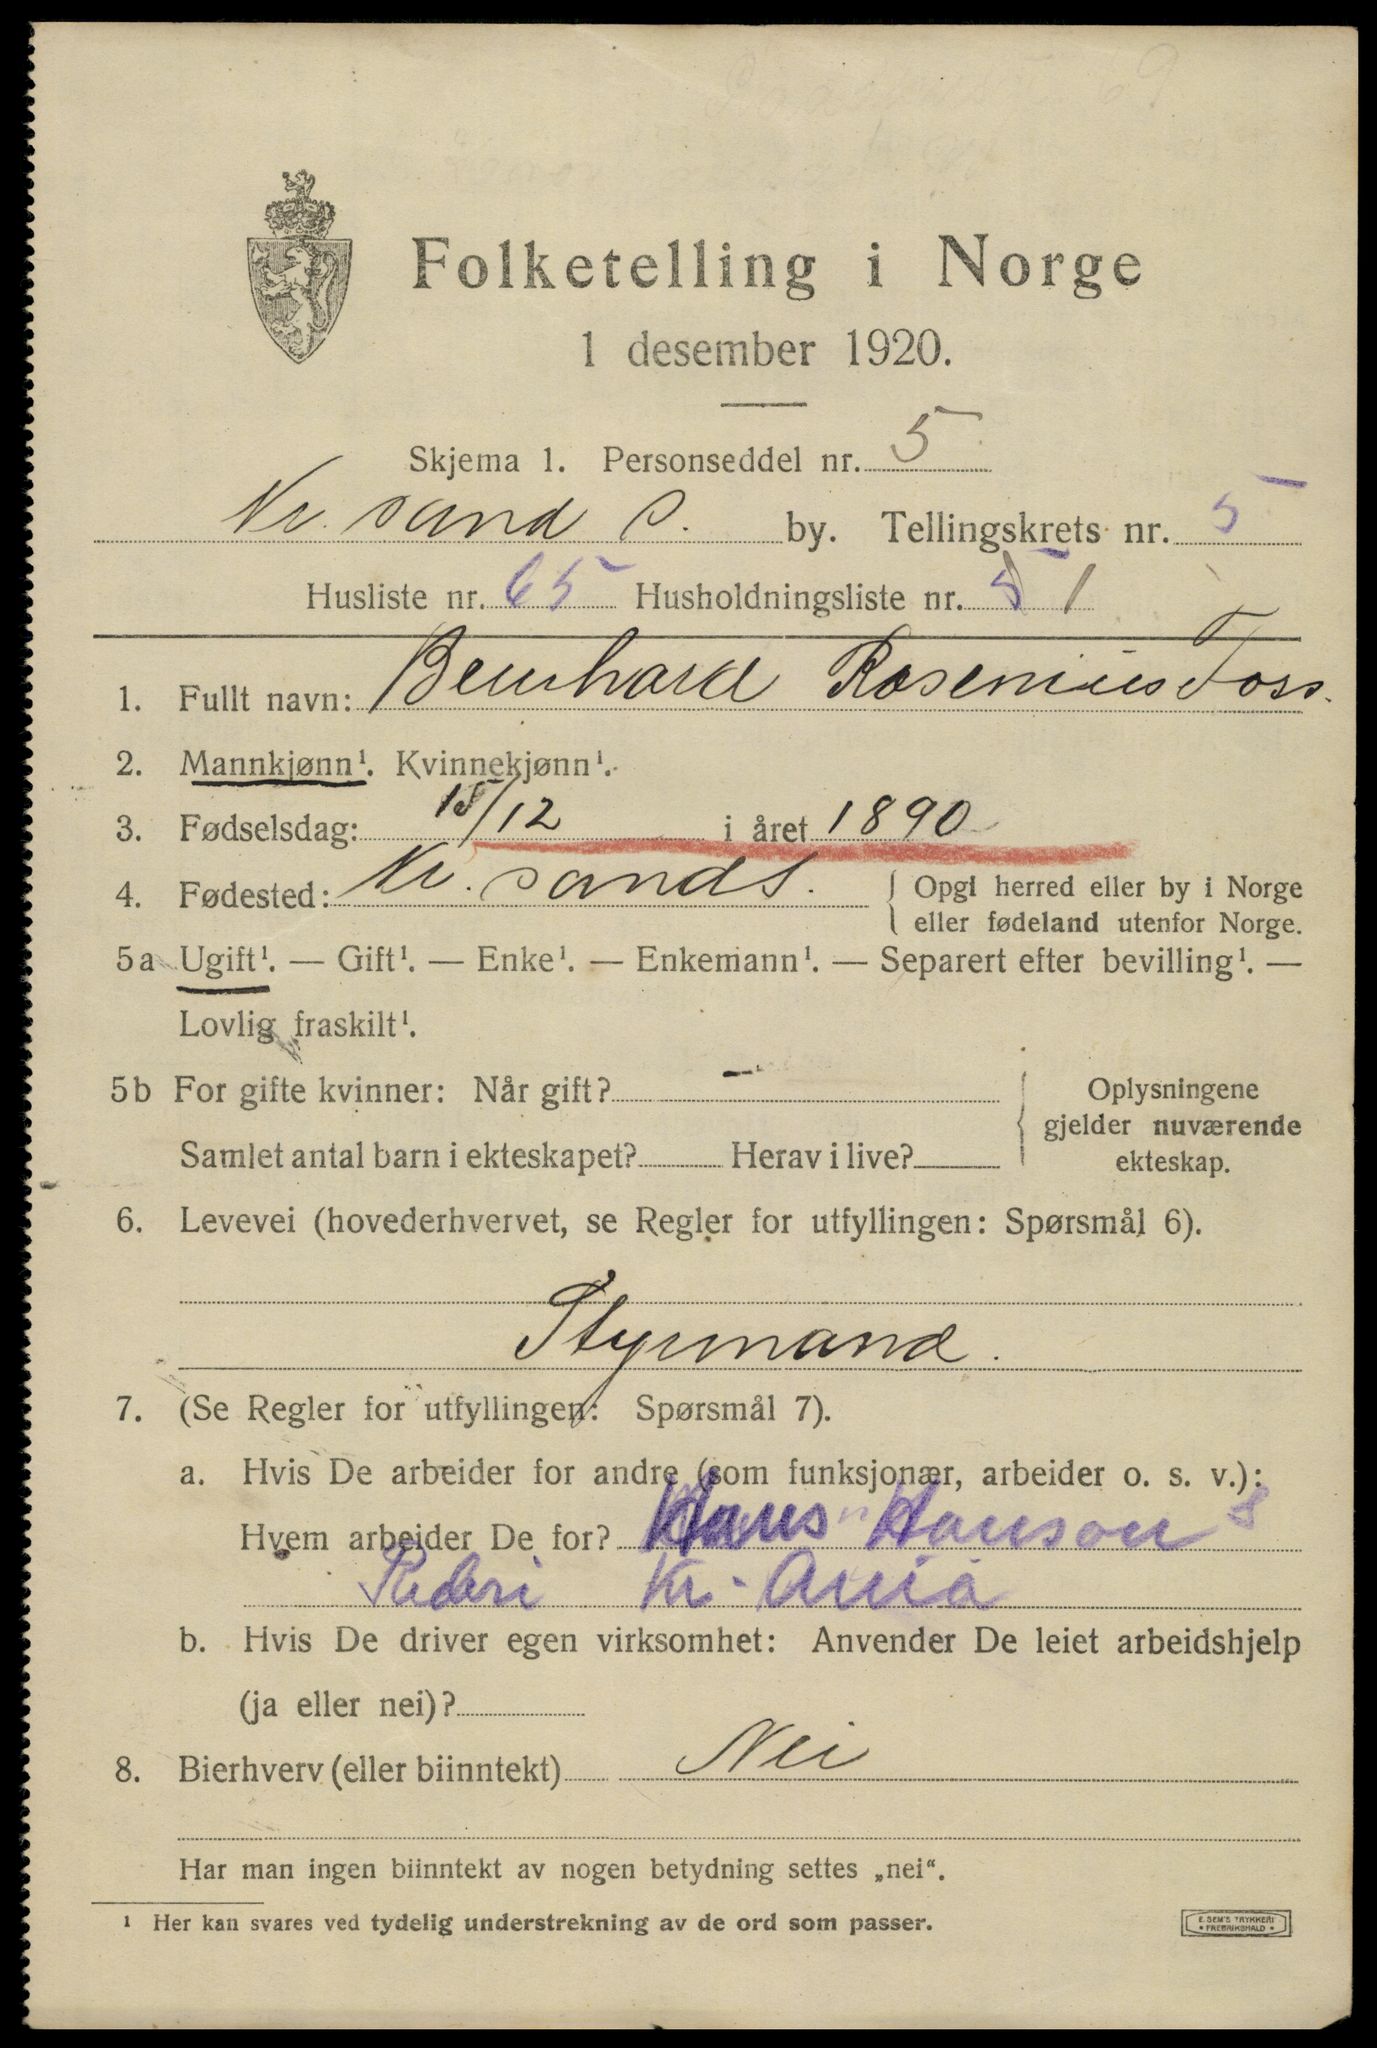 Folketelling i Norge
1 desember 1920.
Skjema 1. Personseddel nr. 5
Kr. sand S. by. Tellingskrets nr. 5
Husliste nr. 65 Husholdningsliste nr. 1
1. Fullt navn: Bernhard Rosenius Foss.
2. Mannkjønn¹. Kvinnekjønn¹.
3. Fødselsdag: 18/12 i året 1890
4. Fødested: Kr. sand S. { Opgi herred eller by i Norge
eller fødeland utenfor Norge.
5a Ugift¹. — Gift¹. — Enke¹. — Enkemann¹. — Separert efter bevilling¹. —
Lovlig fraskilt¹.
5b For gifte kvinner: Når gift? — { Oplysningene
gjelder nuværende
Samlet antal barn i ekteskapet? Herav i live? ekteskap.
6. Levevei (hovederhvervet, se Regler for utfyllingen: Spørsmål 6).
Styrmand.
7. (Se Regler for utfyllingen: Spørsmål 7).
a. Hvis De arbeider for andre (som funksjonær, arbeider o. s. v.):
Hvem arbeider De for? Hans Hanson s
Rederi Kr. Ania
b. Hvis De driver egen virksomhet: Anvender De leiet arbeidshjelp
(ja eller nei)?
8. Bierhverv (eller biinntekt) Nei
Har man ingen biinntekt av nogen betydning settes „nei“.
¹ Her kan svares ved tydelig understrekning av de ord som passer.
E. SEM'S TRYKKERI
FREDRIKSHALD